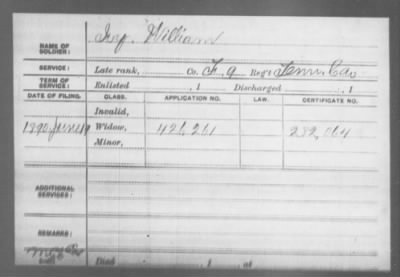 NAME OF SOLDIER: Ivy, William
SERVICE: Late rank, Co. F. 9 Reg't Tenn. Cav
TERM OF SERVICE: Enlisted , 1 Discharged , 1
DATE OF FILING. CLASS. APPLICATION NO. LAW. CERTIFICATE NO.
Invalid,
1890, June 19 Widow, 282,064
Minor,
ADDITIONAL SERVICES:
REMARKS:
Died , 1 at